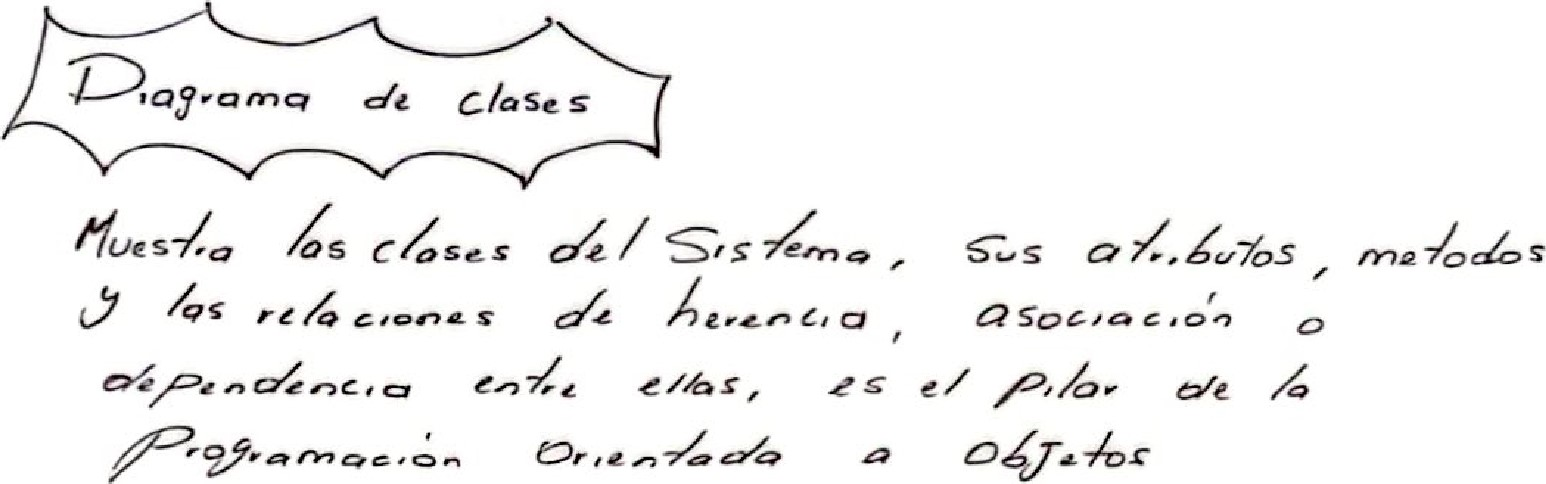 Diagrama de clases
Muestra las clases del Sistema, sus atributos, metodos
y las relaciones de herencia, asociación o
dependencia entre ellas, es el pilar de la
Programación Orientada a Objetos